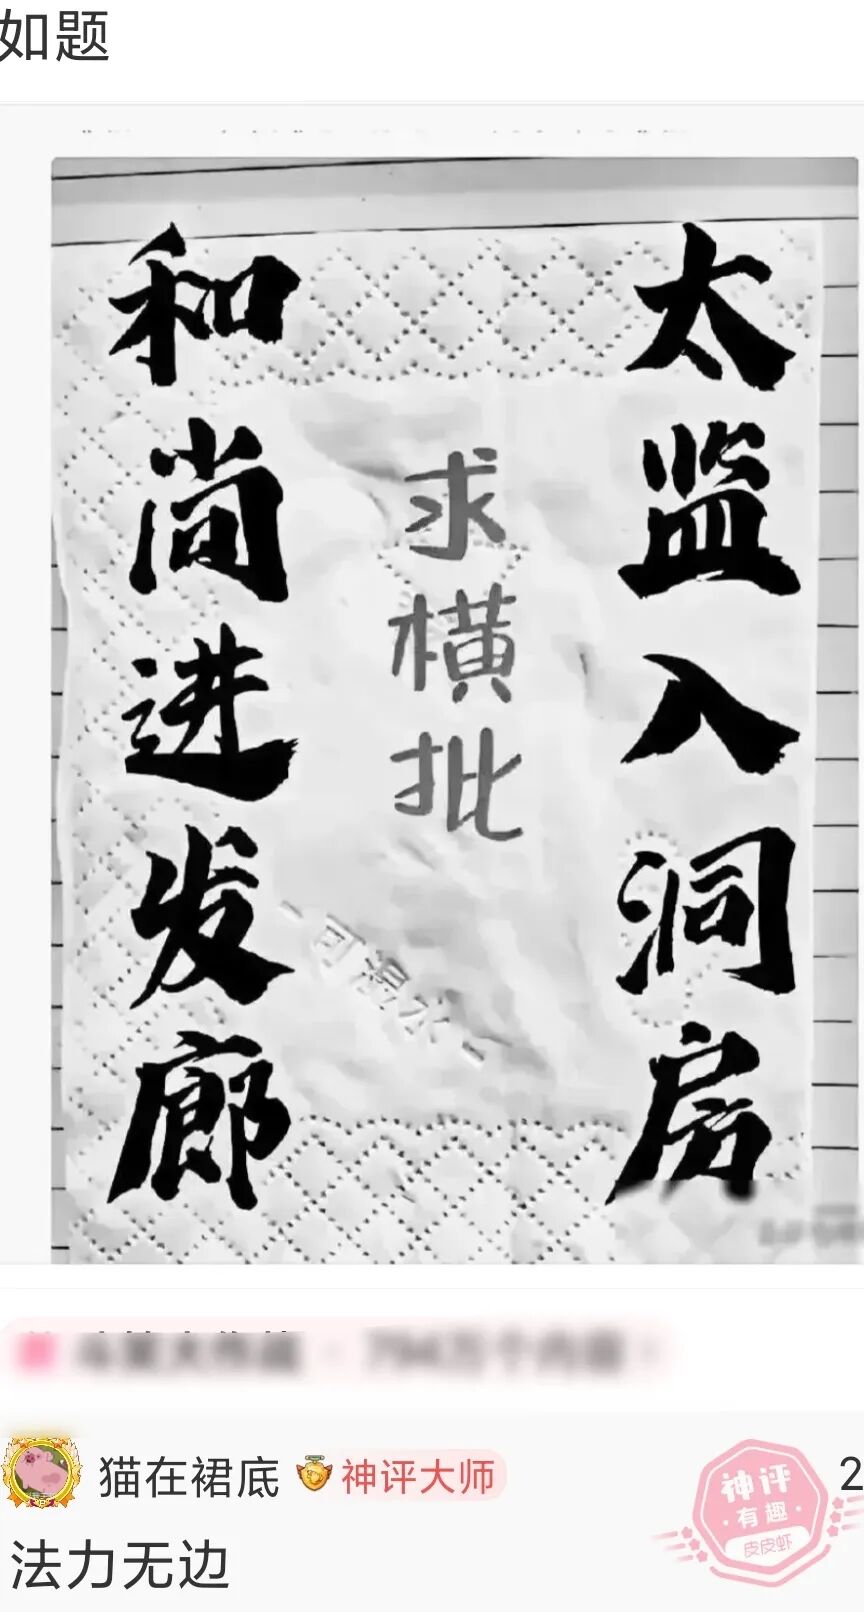 如题
太监入洞房
和尚进发廊
求横批
可湿水
猫在裙底 神评大师
神评
有趣
皮皮虾
2
法力无边